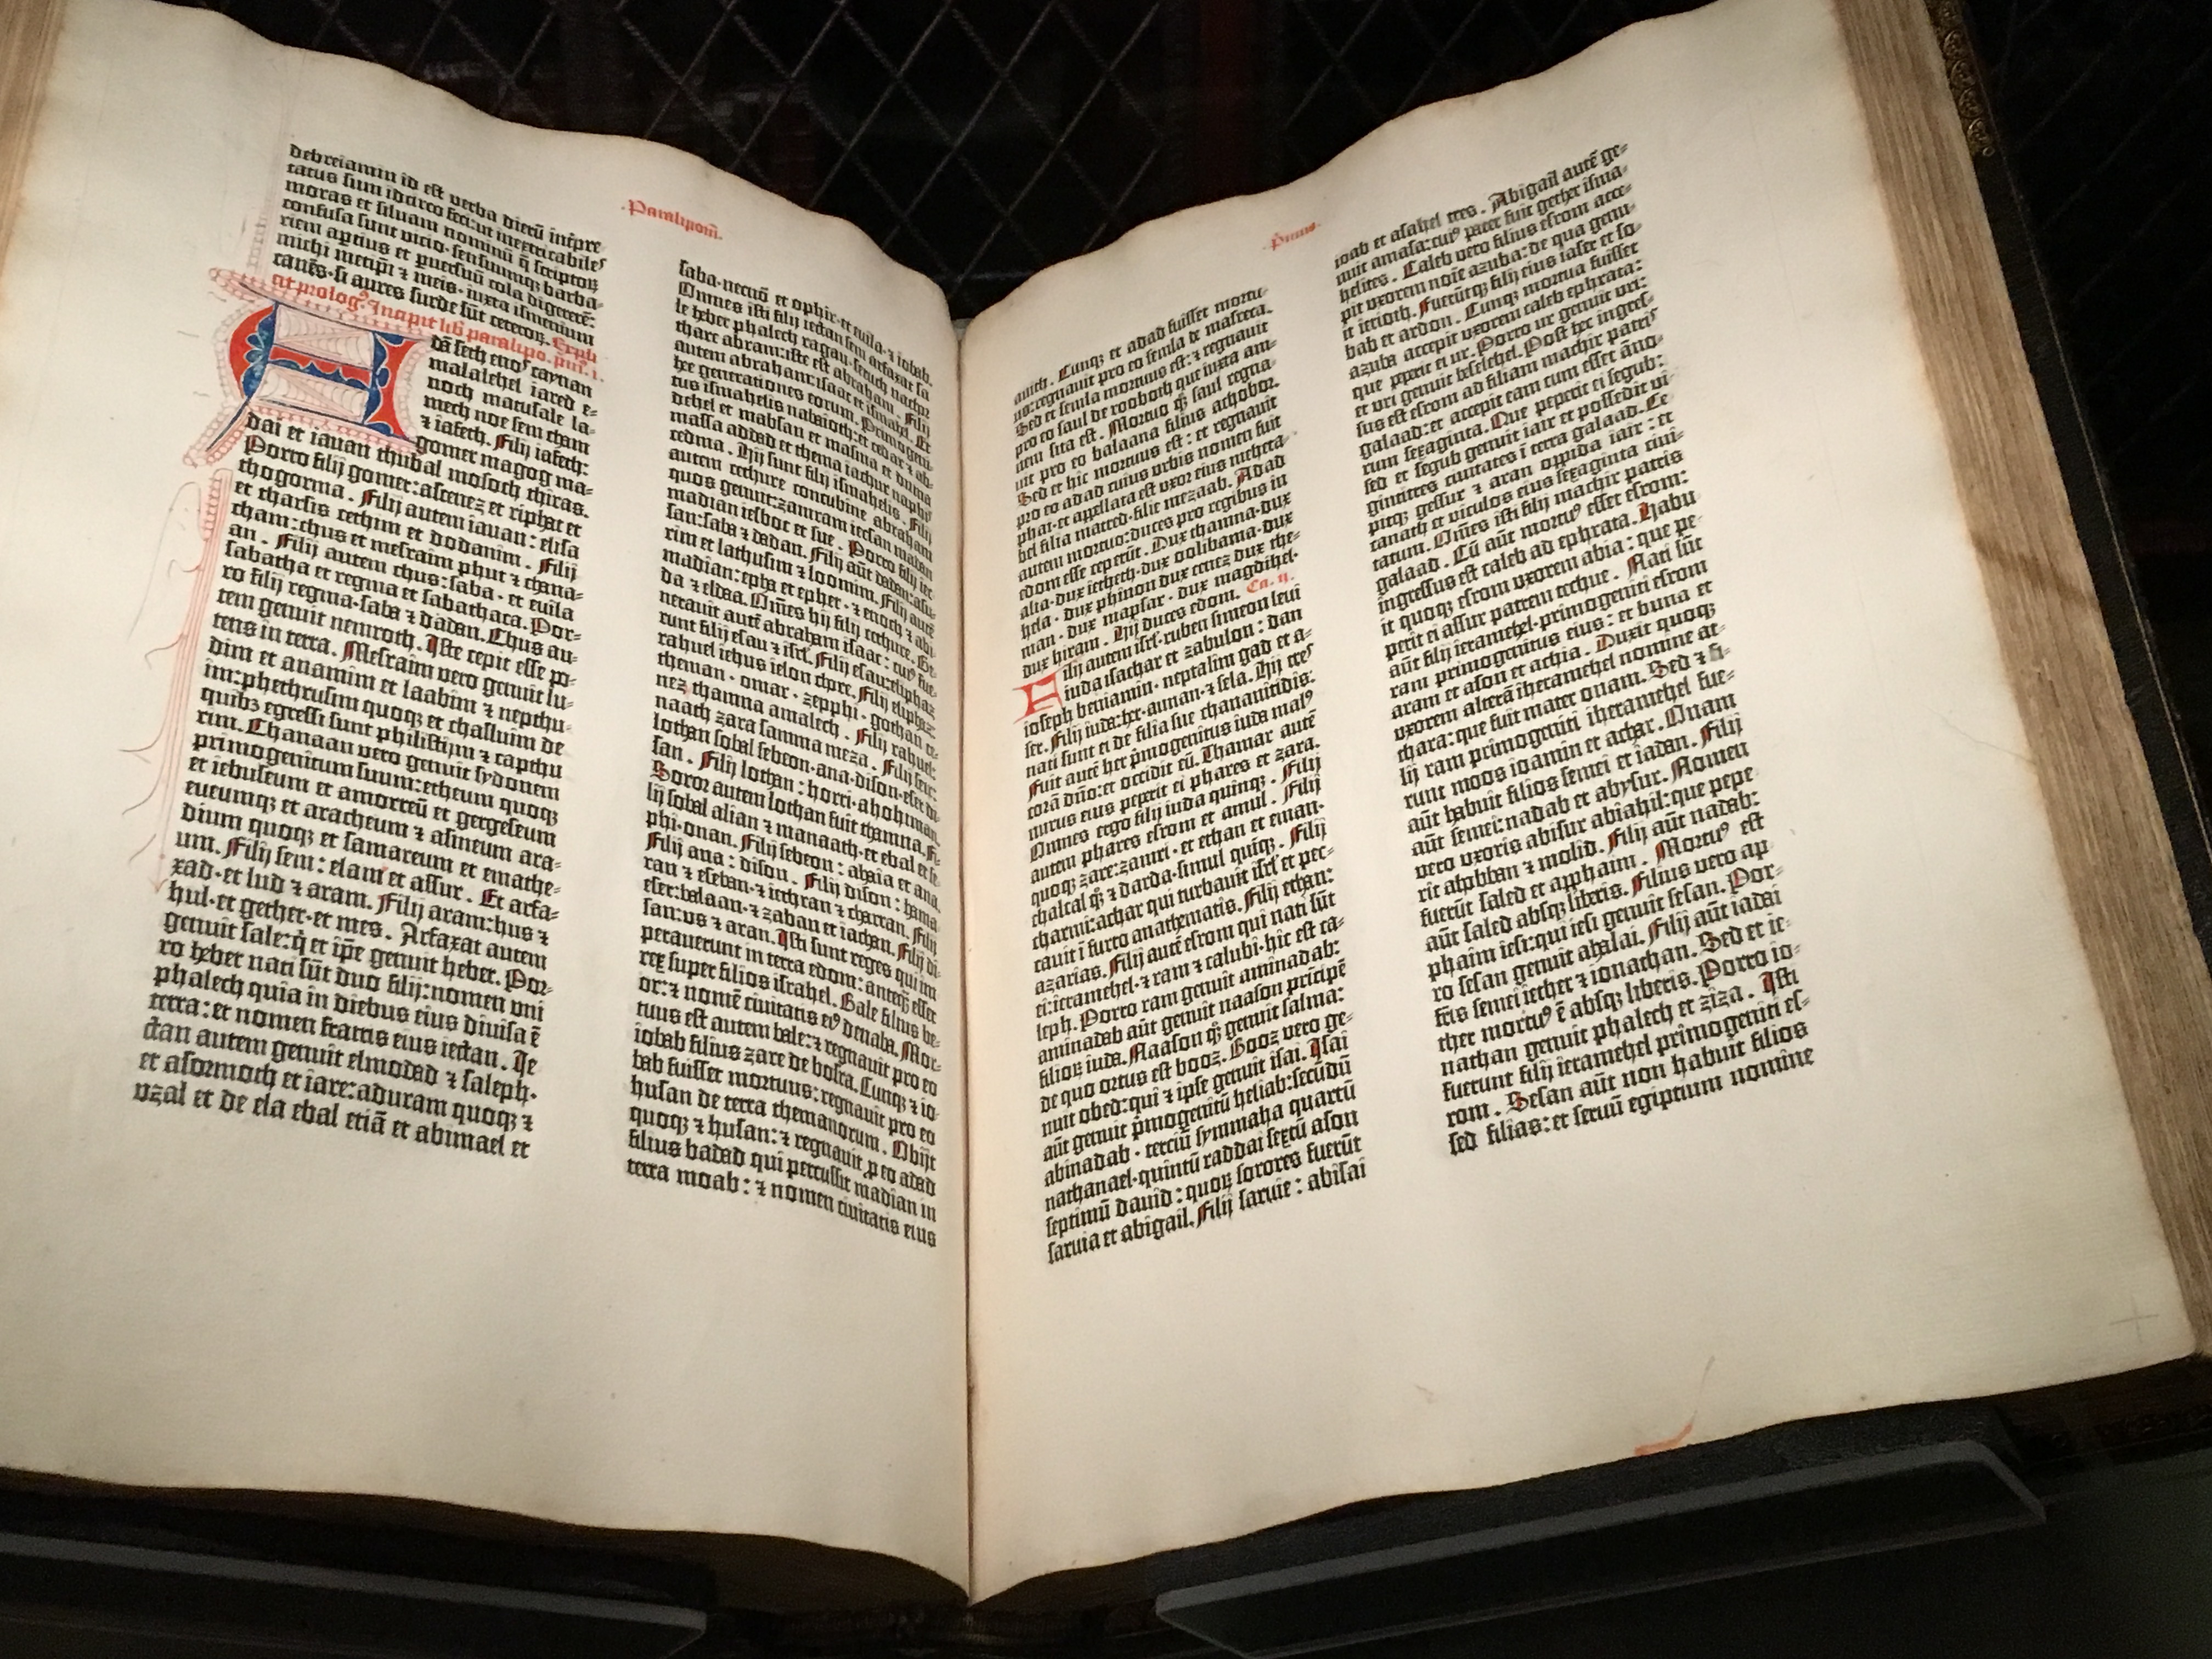 Paralipom̄.
debreiamin id est verba dierū inr̄pre
tatus sum idcirco feci: ut inextricabiles
moras et siluam nominū q̄ scriptorꝝ
confusa sunt vicio. sensuumqꝫ barba-
riem apertius et ꝑ versuū cola digererē:
michi metip̄i ⁊ meis. iuxta ismenium
canēs. si aures surde sūt ceterorꝫ. Expli
cit prolog⁹. Incipit lib̄ paralipo. prim̄. i.
Adā seth enos caynan
malalehel iared e-
noch matusale la-
mech noe sem cham
⁊ iafeth. Filij iafeth:
gomer magog ma-
dai et iauan thubal mosoch thiras.
Porro filij gomer: ascenez et riphat et
thogorma. Filij autem iauan: elisa
et tharsis cethim et dodanim. Filij
cham: chus et mesraim phut ⁊ chana-
an. Filij autem chus: saba. et euila
sabatha et regma et sabathaca. Por-
ro filij regma. saba ⁊ dadan. Chus au-
tem genuit nemroth. Iste cepit esse po-
tens in terra. Mesraim vero genuit lu-
dim et anamim et laabim ⁊ nepthu-
im: phethrusim quoqꝫ et chasluim de
quibꝫ egressi sunt philistijm ⁊ capthu
rim. Chanaan vero genuit sydonem
primogenitum suum: etheum quoqꝫ
et iebuseum et amorreū et gergeseum
eueumqꝫ et aracheum ⁊ asineum ara-
dium quoqꝫ et samareum et emathe-
um. Filij sem: elam et assur. Et arfa-
xad. et lud ⁊ aram. Filij aram: hus ⁊
hul. et gether. et mes. Arfaxat autem
genuit sale: q̇ et ip̄e genuit heber. Por-
ro heber nati sūt duo filij: nomen vni
phalech quia in diebus eius diuisa ē
terra: et nomen fratris eius iectan. Ie
ctan autem genuit elmodad ⁊ saleph.
et asormoth et iare: aduram quoqꝫ ⁊
vzal et de ela ebal etiā et abimael et
saba. necnō et ophir. et euila. ⁊ iobab.
Omnes isti filij iectan sem arfaxat sa
le heber phalech ragau. seruch nachor
thare abram: iste est abraham. Filij
autem abraham: isaac et ismahel. Et
hee generationes eorum. Primogeni-
tus ismahelis nabaioth: et cedar ⁊ ab-
dehel et mabsan et masma et duma
massa addad et thema iachur naphis
cedma. Hij sunt filij ismahelis. Filij
autem cethure concubine abraham
quos genuit: zamram iecsan madan
madian iesboc et sue. Porro filij iec-
san: saba ⁊ dadan. Filij aūt dadan: asu-
rim et lathusim ⁊ loomim. Filij autē
madian: epha et epher. ⁊ enoch ⁊ abi-
da ⁊ eldaa. Omēs hij filij cethure. Ge-
nerauit autē abraham isaac: cui⁹ fue-
runt filij esau ⁊ isrl̄. Filij esau: eliphaz
rahuel iehus ielon chore. Filij eliphaz:
theman. omar. zepphi. gothan ce-
nez thamna amalech. Filij rahuel:
naath zara samma meza. Filij seir:
lothan sobal sebeon. ana. dison. eser di-
san. Filij lothan: horri. ahohman.
Soror autem lothan fuit thamna. Fi-
lij sobal alian ⁊ manaath. et ebal et se
phi. onan. Filij sebeon: ahaia et ana.
Filij ana: dison. Filij dison: hama
ran ⁊ eseban. ⁊ iethran ⁊ charran. Filij
eser: balaan. ⁊ zaban et iachan. Filij di-
san: vs ⁊ aran. Isti sunt reges qui im
perauerunt in terra edom: anteq̄ꝫ esset
rex super filios israhel. Bale filius be-
or: ⁊ nomē ciuitatis ei⁹ denaba. Mor-
tuus est autem bale: ⁊ regnauit pro eo
iobab filius zare de bosra. Cunqꝫ ⁊ io-
bab fuisset mortuus: regnauit pro eo
husan de terra themanorum. Obijt
quoqꝫ ⁊ husan: ⁊ regnauit ꝓ eo adad
filius badad qui percussit madian in
terra moab: ⁊ nomen ciuitatis eius
Primus.
auith. Cunqꝫ et adad fuisset mortu-
us: regnauit pro eo semla de masreca.
Sed et semla mortuus est: ⁊ regnauit
pro eo saul de rooboth que iuxta am-
nem sita est. Mortuo qꝫ saul regna-
uit pro eo balaana filius achobor.
Sed et hic mortuus est: et regnauit
pro eo adad cuius vrbis nomen fuit
phau. et appellata est vxor eius meheta-
bel filia matred. filie mezaab. Adad
autem mortuo: duces pro regibus in
edom esse ceperūt. Dux thamna. dux
alia. dux ietheth. dux oolibama. dux
hela. dux phinon dux cenez dux the-
man. dux mapsar. dux magdihel.
dux hiram. Hij duces edom. Ca. ij.
Filij autem isrl̄. ruben simeon leui
iuda isachar et zabulon: dan
ioseph beniamin. neptalim gad et a-
ser. Filij iuda: her. aunan. ⁊ sela. Hij tres
nati sunt ei de filia sue chananitidis.
Fuit autē her p̄mogenitus iuda mal⁹
corā dn̄o: et occidit eū. Thamar autē
nurus eius peperit ei phares et zara.
Omnes ergo filij iuda quinqꝫ. Filij
autem phares esrom et amul. Filij
quoqꝫ zare: zamri. et ethan et eman.
chalcal qꝫ ⁊ darda. simul quīqꝫ. Filij
charmi: achar qui turbauit isrl̄ et pec-
cauit ī furto anathematis. Filij ethan:
azarias. Filij autē esrom qui nati sūt
ei: ieramehel. ⁊ ram ⁊ calubi. hic est ca-
leph. Porro ram genuit aminadab:
aminadab aūt genuit naason prīcipē
filiorꝫ iuda. Naason qꝫ genuit salma:
de quo ortus est booz. Booz vero ge-
nuit obed: qui ⁊ ipse genuit isai. Isai
aūt genuit p̄mogenitū heliab: secūdū
abinadab. terciū symmaha quartū
nathanael. quintū raddai sextū ason
septimū dauid: quorꝫ sorores fuerūt
saruia et abigail. Filij saruie: abisai
ioab et asahel tres. Abigail autē ge-
nuit amasa: cui⁹ pater fuit gether isma-
helites. Caleb vero filius esrom acce-
pit vxorem noīe azuba: de qua genu-
it ierioth. Fuerūtqꝫ filij eius iaser et so-
bab et ardon. Cunqꝫ mortua fuisset
azuba accepit vxorem caleb ephrata:
que peperit ei ur. Porro ur genuit uri:
et vri genuit beselehel. Post hec ingres-
sus est esrom ad filiam machir patris
galaad: et accepit eam cum esset āno-
rum sexaginta. Que peperit ei segub:
sed et segub genuit iair et possedit vi-
gintitres ciuitates ī terra galaad. Ce
pitqꝫ gessur ⁊ aran oppida iair: et
canath et viculos eius sexaginta ciui-
tatum. Omēs isti filij machir patris
galaad. Cū aūt mortu⁹ esset esrom:
ingressus est caleb ad ephrata. Habu
it quoqꝫ esrom vxorem abia: que pe-
perit ei assur patrem tecthue. Nati sūt
aūt filij ieramehel. primogeniti esrom
ram primogenitus eius: et buna et
aram et ason et achia. Duxit quoqꝫ
vxorem alterā iheramehel nomine at-
thara: que fuit mater onam. Sed ⁊ fi-
lij ram primogeniti iheramehel fue-
runt moos ioamin et achar. Onam
aūt habuit filios semei et iadan. Filij
aūt semei: nadab et abysur. Nomen
vero vxoris abisur abiahil: que pepe
rit ahobban ⁊ molid. Filij aūt nadab:
fuerūt saled et apphaim. Mortu⁹ est
aūt saled absqꝫ liberis. Filius vero ap
phaim iesi: qui iesi genuit sesan. Por-
ro sesan genuit ahalai. Filij aūt iadai
fr̄is semei iether ⁊ ionathan. Sed et ie-
ther mortu⁹ ē absqꝫ liberis. Porro io-
nathan genuit phalech et ziza. Isti
fuerunt filij ieramehel primogeniti es-
rom. Sesan aūt non habuit filios
sed filias: et seruū egiptium nomine